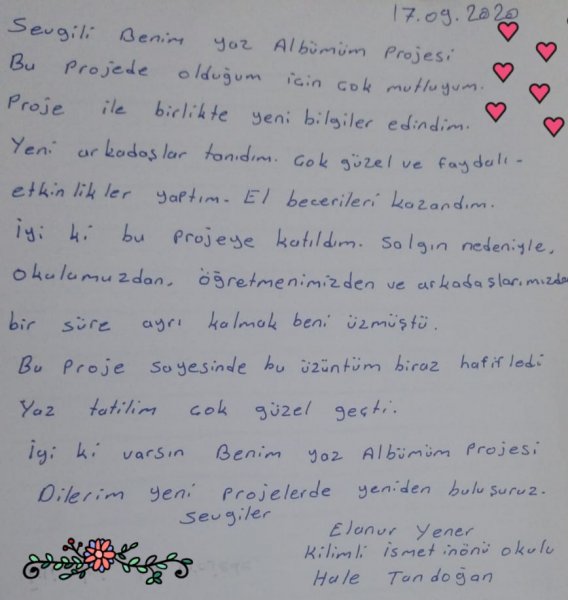 17.09.2020
Sevgili Benim yaz Albümüm Projesi
Bu Projede olduğum için çok mutluyum.
Proje ile birlikte yeni bilgiler edindim.
Yeni arkadaşlar tanıdım. Çok güzel ve faydalı-
etkinlikler yaptım. El becerileri kazandım.
İyi ki bu projeye katıldım. Salgın nedeniyle,
okulumuzdan, öğretmenimizden ve arkadaşlarımızdan
bir süre ayrı kalmak beni üzmüştü.
Bu Proje sayesinde bu üzüntüm biraz hafifledi
Yaz tatilim çok güzel geçti.
İyi ki varsın Benim yaz Albümüm Projesi
Dilerim yeni projelerde yeniden buluşuruz.
Sevgiler
Elanur Yener
Kilimli İsmet inönü okulu
Hale Tandoğan